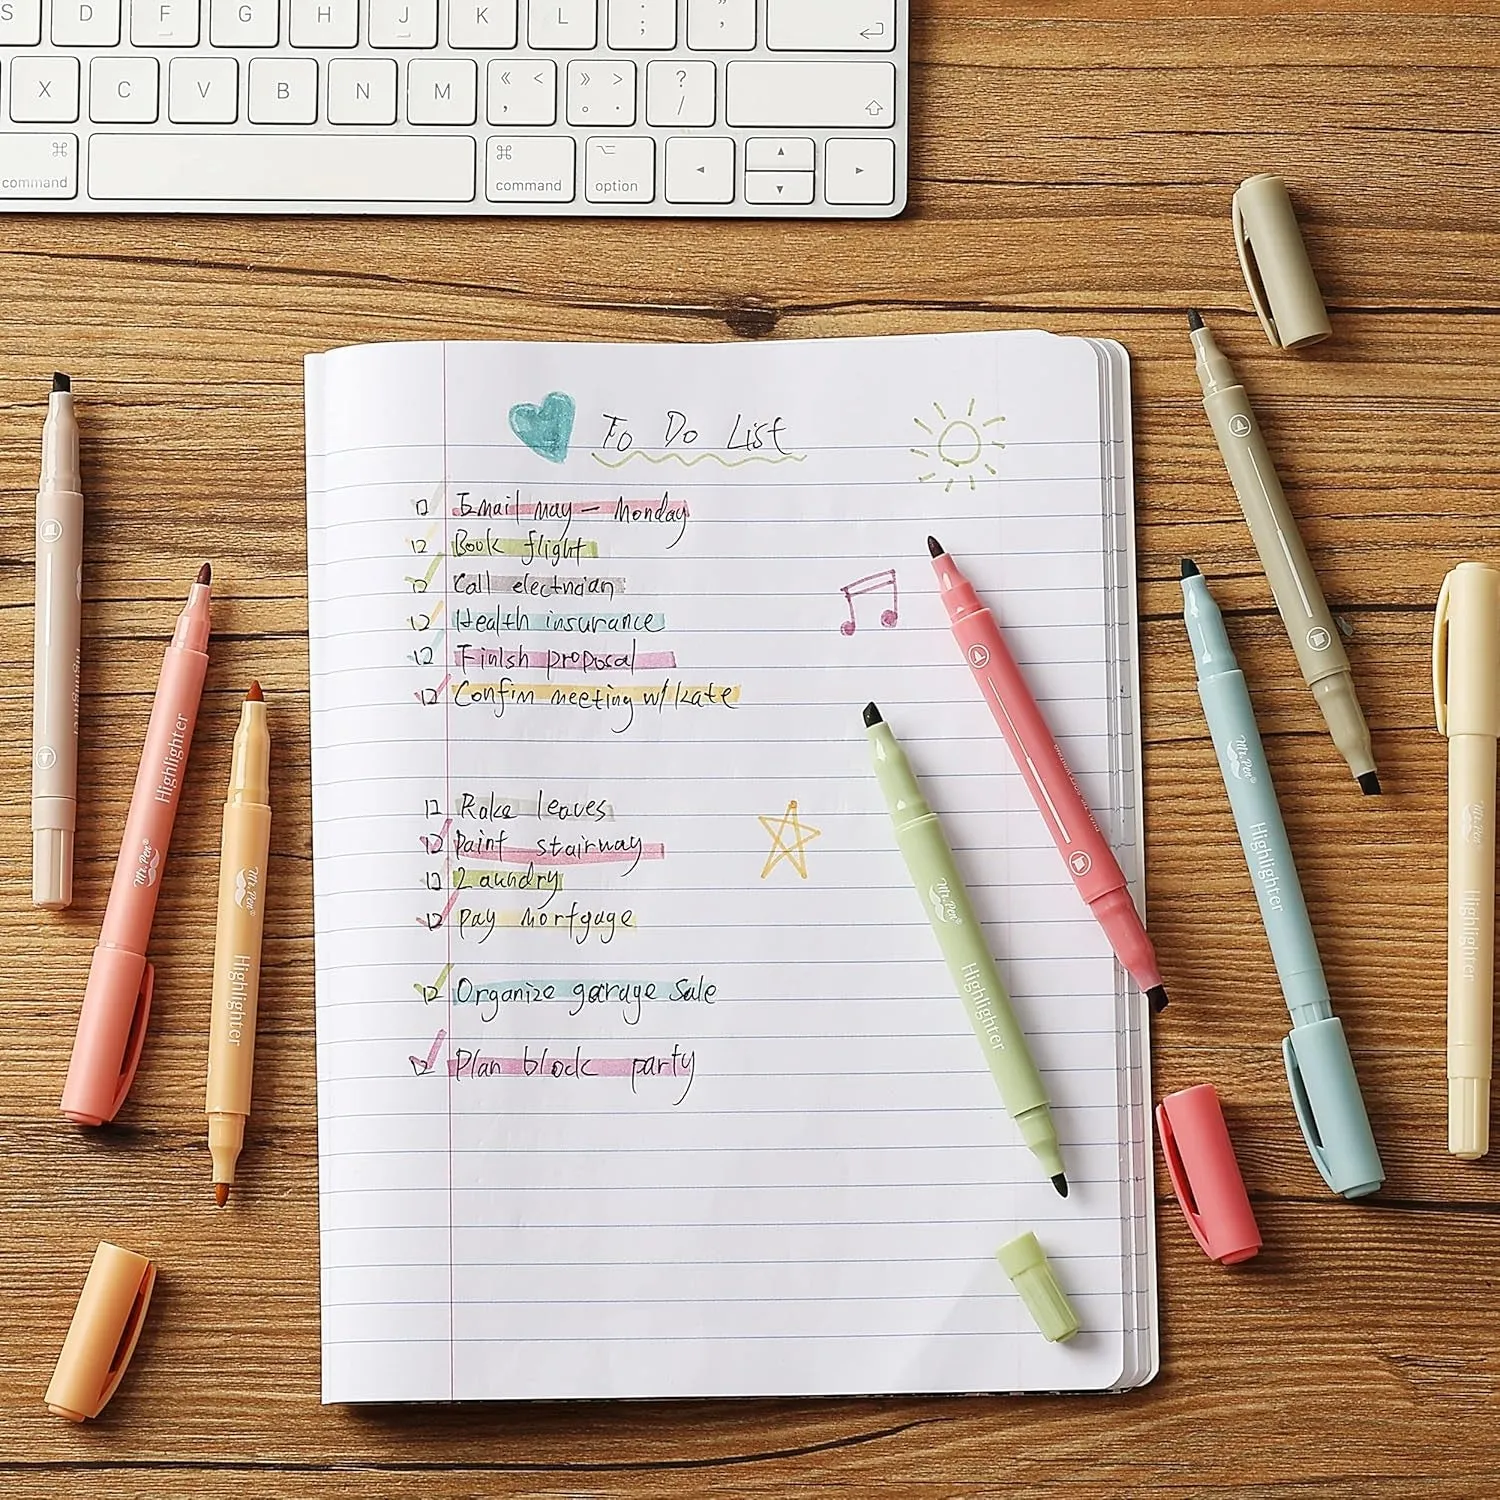 S D F G H J K L : ; " '
X C V B N M « < , » > 。 . ? /
⌘ command ⌘ command ⌥ option
To Do List
Email may - Monday
Book flight
Call electrician
Health insurance
Finish proposal
Confim meeting w/ kate
Rake leaves
Paint stairway
Laundry
Pay mortgage
Organize garage Sale
Plan block party
Highlighter
Mr. Pen® Highlighter
Mr. Pen® Highlighter
Mr. Pen® Highlighter
Mr. Pen® Highlighter
Mr. Pen® Highlighter